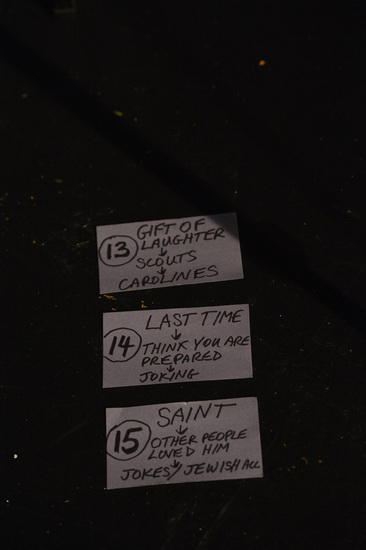 13
GIFT OF
LAUGHTER
↓
SCOUTS
↓
CAROLINES
14
LAST TIME
↓
THINK YOU ARE
PREPARED
↓
JOKING
15
SAINT
↓
OTHER PEOPLE
LOVED HIM
↓
JOKES/JEWISH ALL